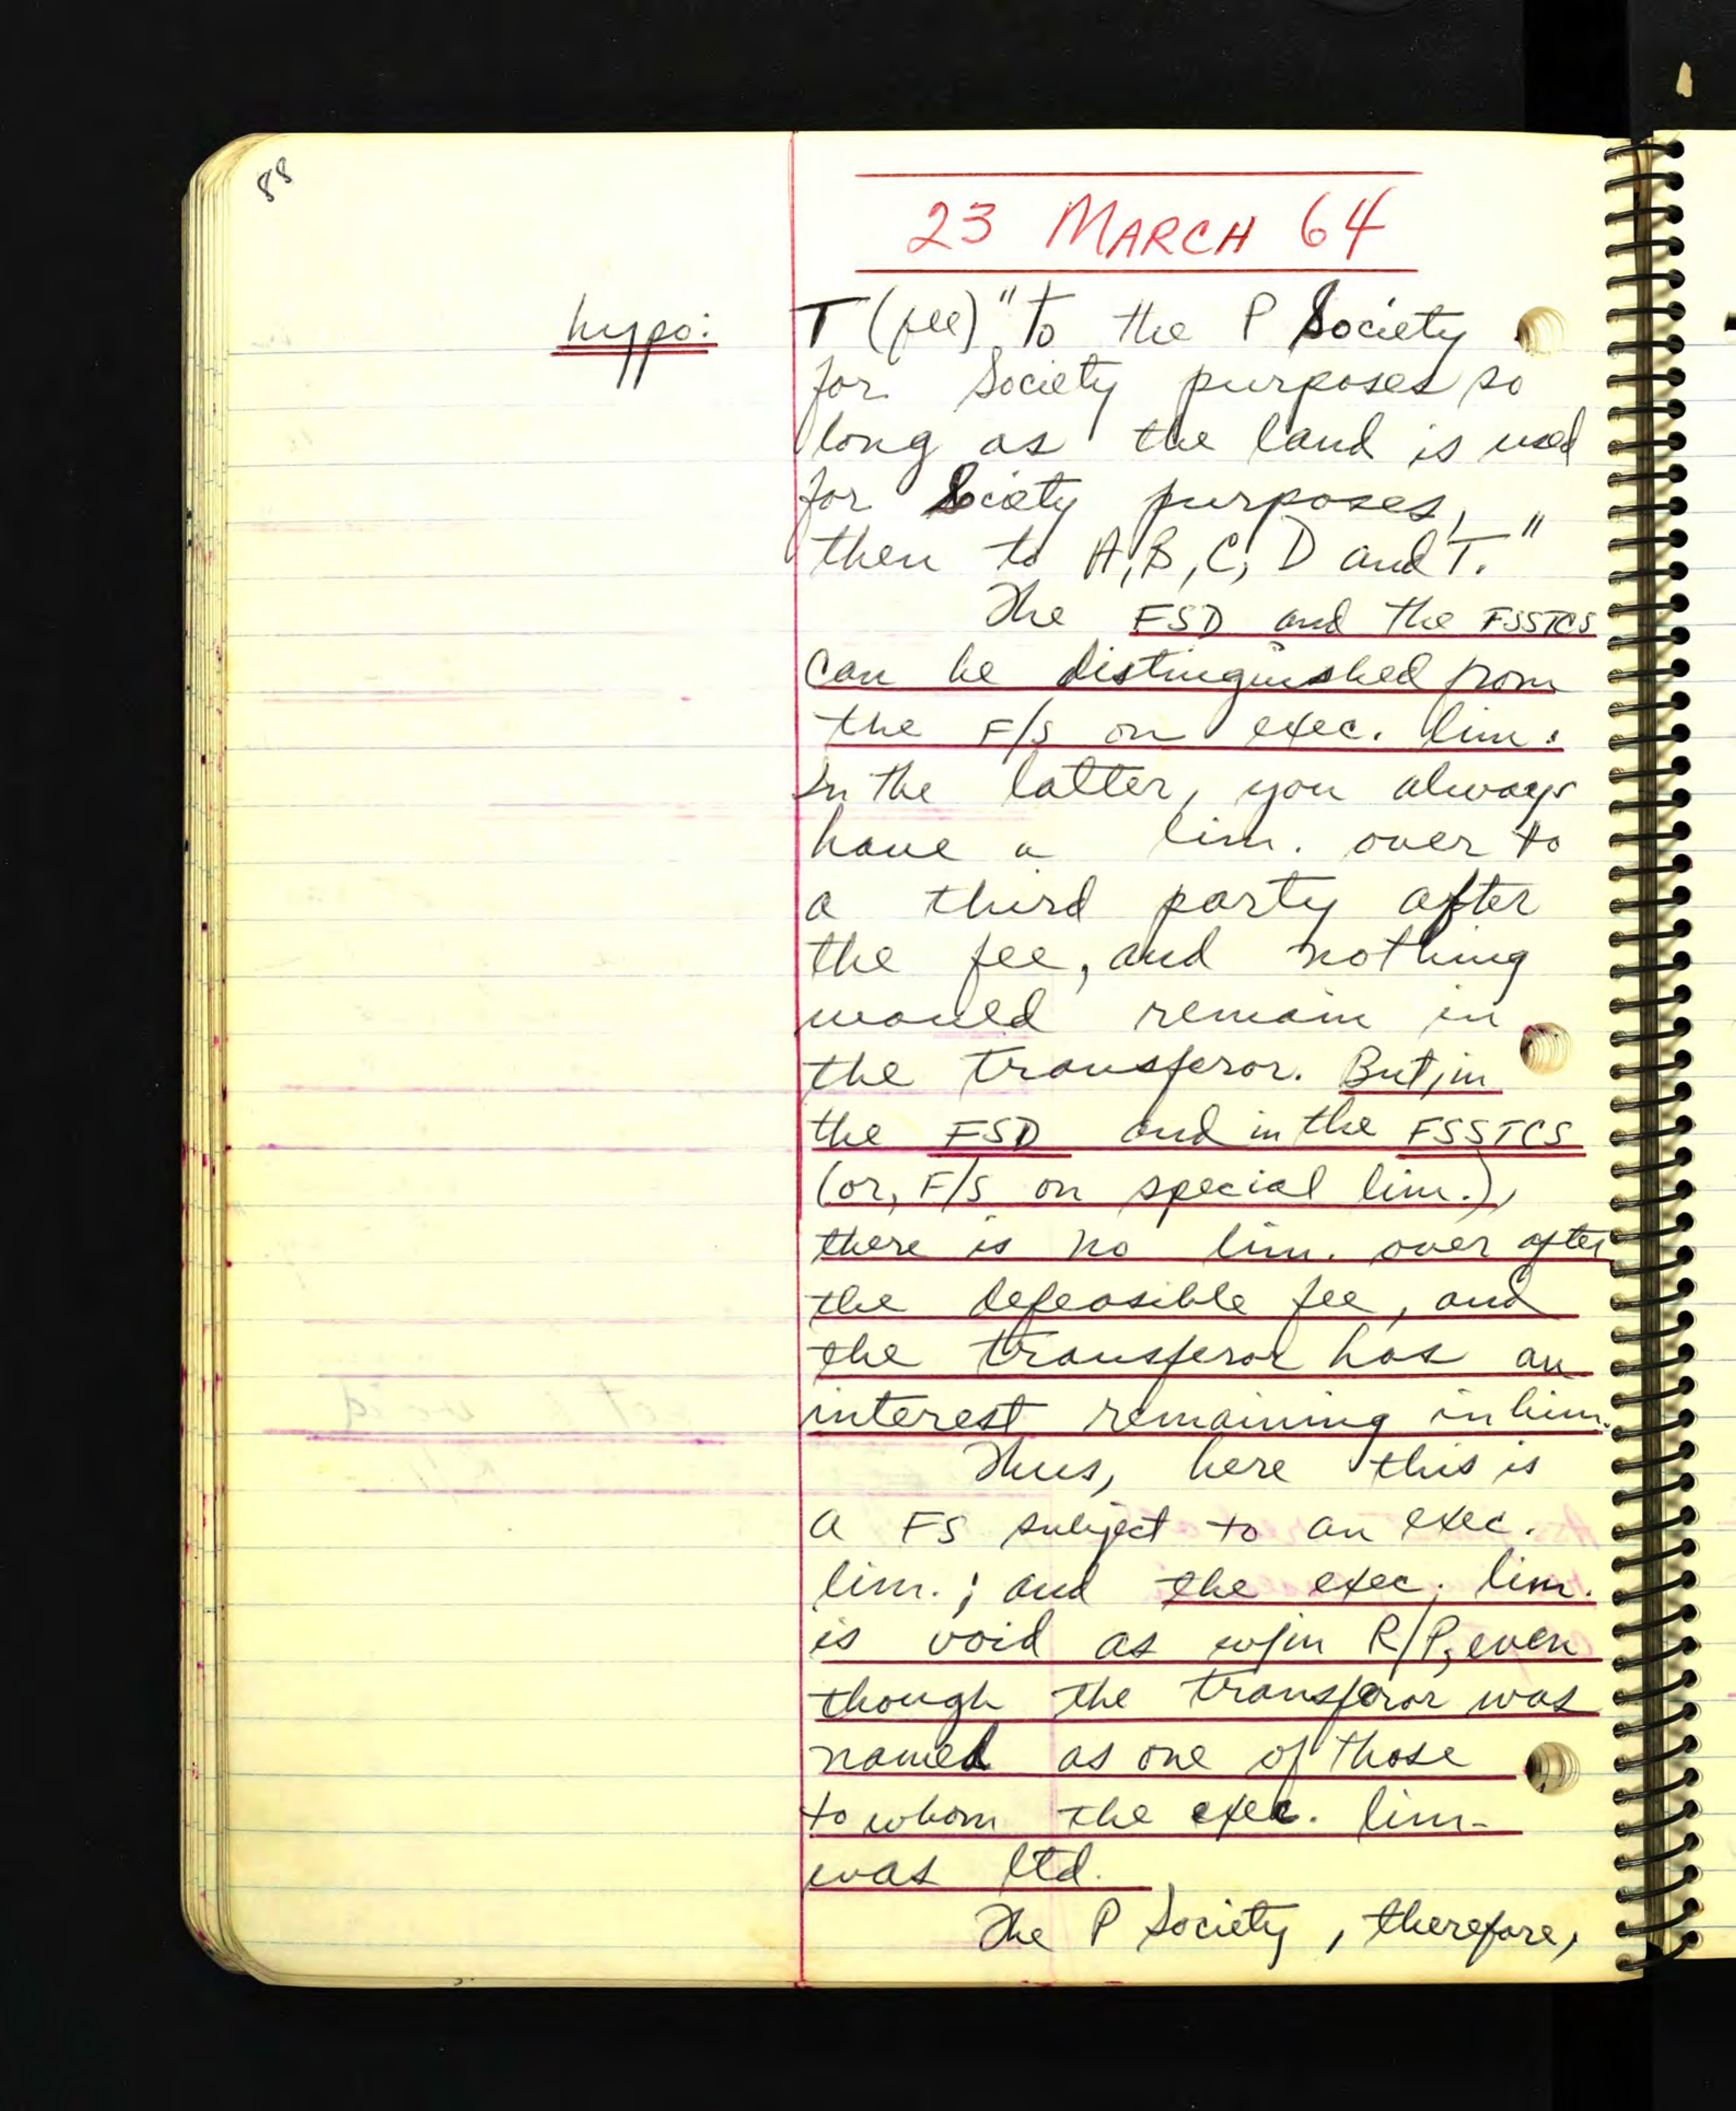 88
23 MARCH 64
hypo: T (fee) "to the P Society
for Society purposes so
long as the land is used
for Society purposes,
then to A, B, C, D and T."
The FSD and the FSSTCS
can be distinguished from
the F/S on exec. lim.
In the latter, you always
have a lim. over to
a third party after
the fee, and nothing
would remain in
the transferor. But, in
the FSD and in the FSSTCS
(or, F/S on special lim.),
there is no lim. over after
the defeasible fee, and
the transferor has an
interest remaining in him.
Thus, here this is
a FS subject to an exec.
lim.; and the exec. lim.
is void as w/in R/P, even
though the transferor was
named as one of those
to whom the exec. lim.
was ltd.
The P Society, therefore,